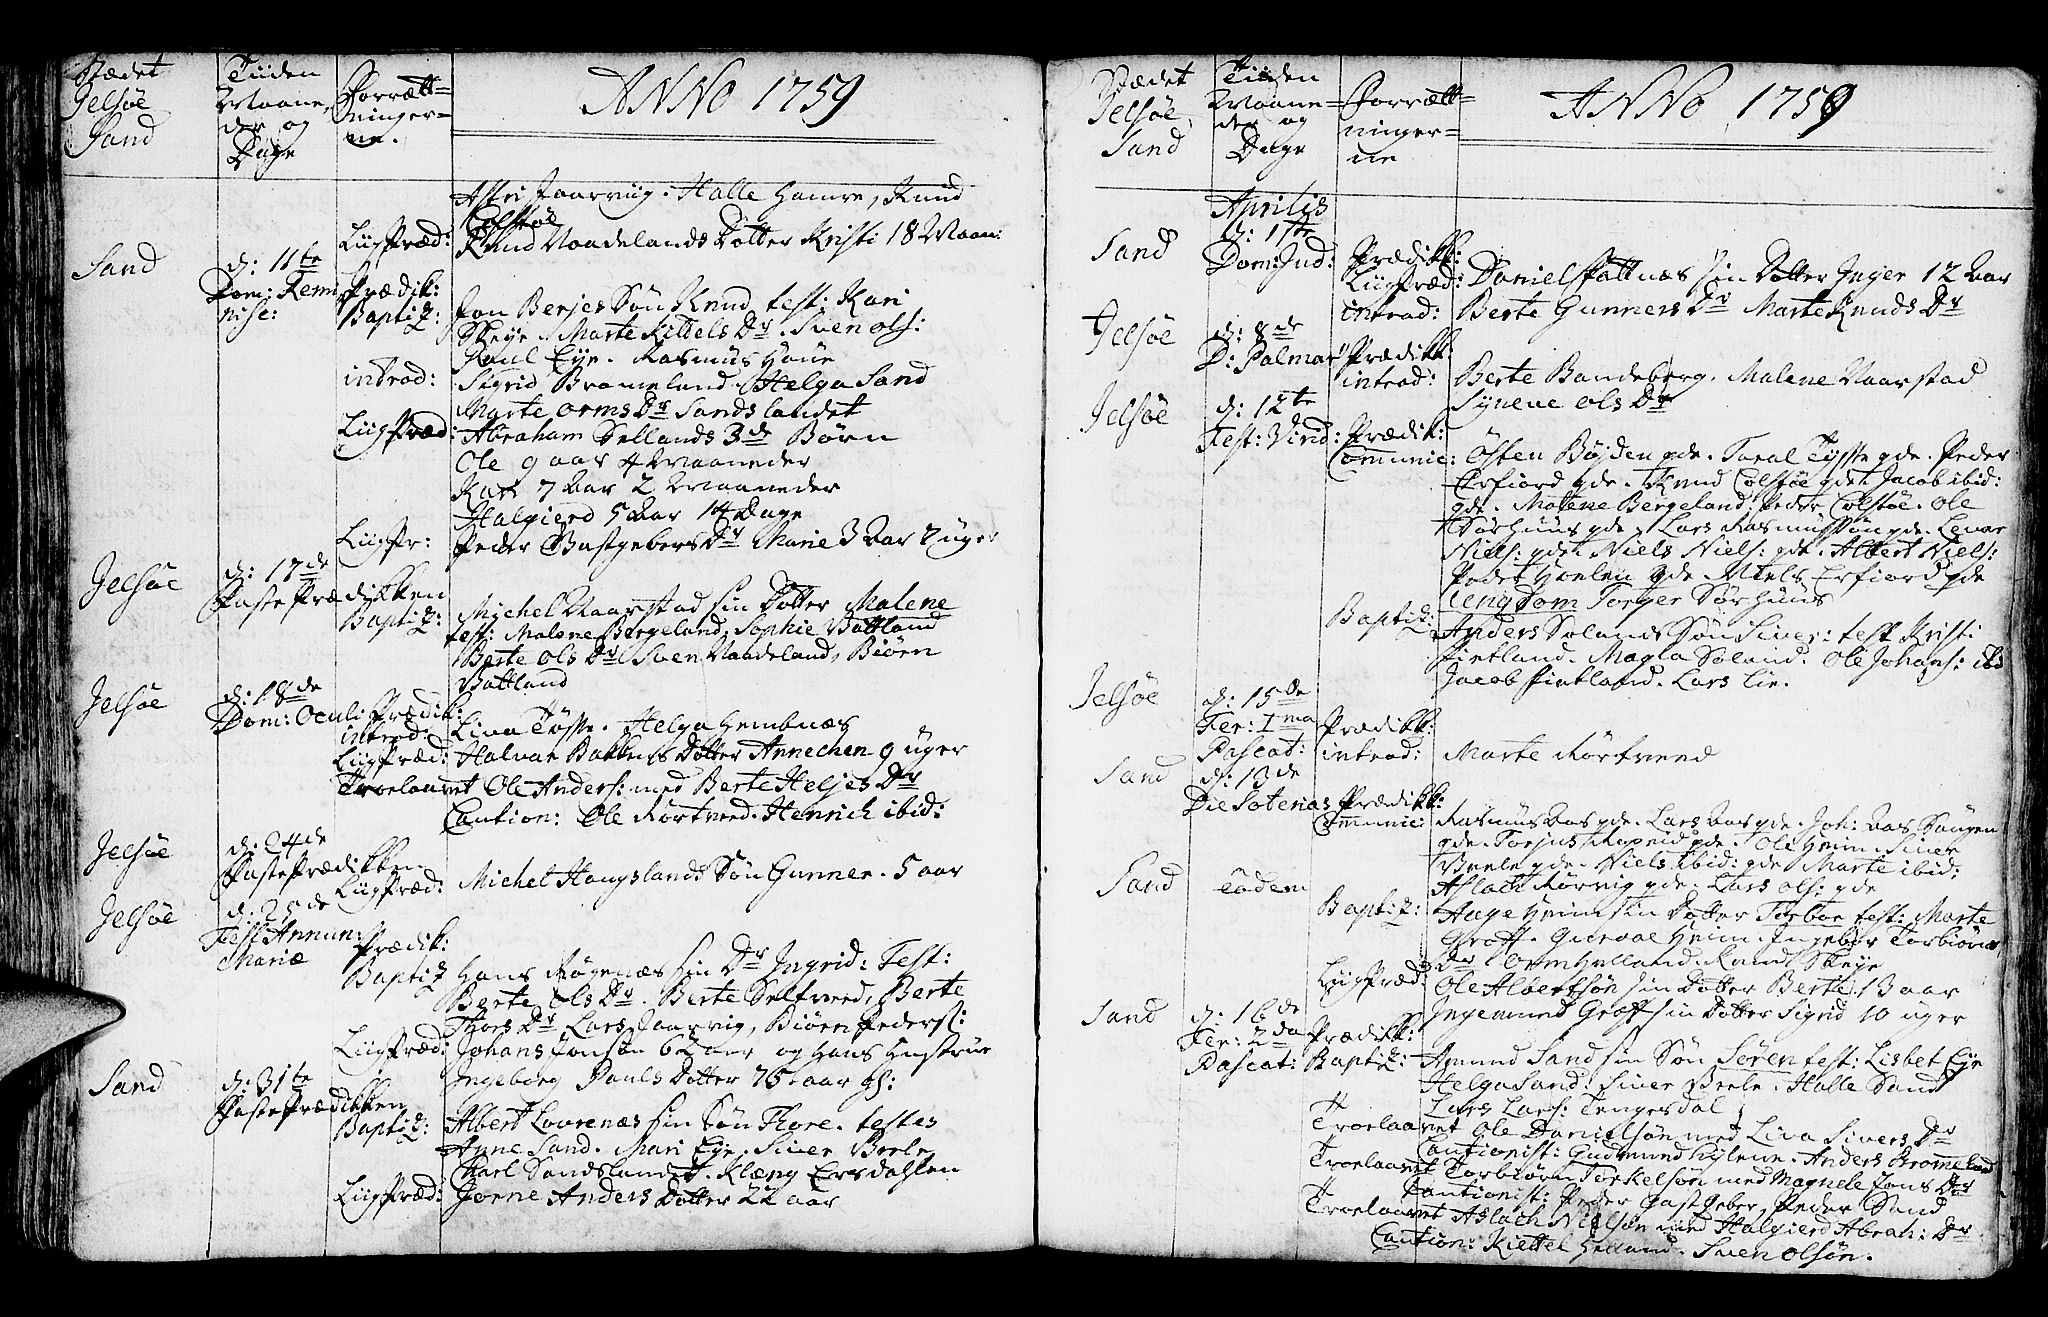 Stædet
Jelsøe
Sand
Tiiden
Maane,
der og
Dage
Forrætt=
ninger=
ne.
ANNO 1759
Astri Jaarviig. Halle Hamre, Knud
Colstøe
Liigpræd: Knud Vaadelands Dotter Kristi 18 Maan:
Sand d: 11te
Dom: Remi
nise: Prædik:
Baptiz: Jon Berjes Søn Knud, test: Kari
Skeye. Marte Kittels Dr. Sven Ols:
Poul Eye. Rasmus Houe
introd: Sigrid Brommeland. Helga Sand
Marte Orms Dr Sandslandet
Liigpræd: Abraham Sellands 3de Børn
Ole 9 aar 4 Maaneder
Kari 7 Aar 2 Maaneder
Halgierd 5 Aar 14 Dage
Liigpr: Peder Gastgebers Dr Marie 3 Aar 2 uger
Jelsøe d: 17de
Fasteprædikken
Baptiz: Michel Naarstad sin Dotter Malene
test: Malene Bergeland, Sophie Battland
Berte Ols Dr. Sven Vaadeland, Biørn
Battland
Jelsøe d: 18de
Dom: Oculi Prædik:
introd: Liva Tøsse. Helga Hembnæs
Liigpræd: Halvor Bakkens Dotter Annechen 9 uger
Troelaavet Ole Anders: med Berte Heljes Dr
Caution: Ole Rørtveed. Henrich ibid:
Jelsøe d: 24de
Fasteprædikken
Liigpræd: Michel Haugslands Søn Gunner. 5 aar
Jelsøe d: 25de
Fest Annun:
Mariæ Prædik:
Baptiz Hans Røgenæs sin Dr Ingrid: Test:
Berte Ols Dr. Berte Selvveed, Berte
Thors Dr Lars Jaarvig, Biørn Peders:
Liigpræd: Johans Jonsøn 62 aar og Hans Hustrue
Ingeborg Pouls Dotter 75 aar
Sand d: 31te
Fasteprædikken
Baptiz: Albert Lovrenæs sin Søn Thore. testes
Anne Sand. Mari Eye. Siver Veele
Carl Sandslandet. Klæng Ersdahlen
Liigpræd: Jorne Anders Dotter 22 aar
Stædet
Jelsøe,
Sand
Tiiden
Maane=
der og
Dage
Forrætt=
ninger=
ne
ANNO 1759
Aprilis
Sand d: 1te
Dom: Jud: Prædikk:
Liigpræd: Daniel Fattnæs sin Dotter Inger 12 Aar
introd: Berte Gunners Dr Marte Knuds Dr
Jelsøe d: 8de
D: Palmar Prædikk:
introd: Berte Bandeberg. Malene Naarstad
Syneve Ols Dr
Jelsøe d: 12te
Fest: Virid: Prædik:
Communic: Østen Bøyden gde. Taral Tysse gde. Peder
Erfiord gde. Knud Colstøe gdet Jacob ibid:
gde. Malene Bergeland, Peder Colstøe. Ole
Sørhuus gde. Lars Rasmussøn gde.
Niels: gdet Niels Niels: gde. Albert Niels:
gde. Niels Erfiord gde
Ungdom Torger Sørhuus
Baptiz: Anders Solands Søn Siver: test Kristi
Fintland. Magla Soland. Ole Johans: ibd
Jacob Fintland. Lars Lie.
Jelsøe d: 15de
Fer: 1ma
Pascat: Prædikk:
introd: Marte Rørtveed
Sand d: 13de
Prædikk:
Communic: Rasmus Aas gde. Lars Aas gde. Joh: Aas Saugen
gde. Torjus gde. Ole Heim. Siver
Veele gde. Niels ibid: gde Marte ibid:
Aslach Rørvig gde. Lars Ols: gde
Sand Eodem
Baptiz: Aage Heim sin Dotter Torbor test: Marte
Groff. Gurvæ Heim. Ingebor Torbiørns
Dr Orm Helland. Knud Skeye
Liigpræd: Ole Albertsøn sin Dotter Berte. 13 aar
Ingemund Groff sin Dotter Sigrid 10 uger
Sand d: 16de
Fer: 2da
Pascat: Prædikk:
Baptiz: Amund Sand sin Søn Søren test: Lisbet Eye
Helga Sand. Siver Veele. Halle Sand
Lars Lars: Tengesdal
Troelaavet Ole Danielsøn med Liva Sivers Dr
Cautionist: Gudmund Hylene. Anders Brommeland
Troelaavet Torbiørn Torkelsøn med Magnele Jons Dr
Cautionist: Peder Gastgeber, Peder Sand
Troelaavet Aslach Nielsøn med Halgierd Abrah: Dr.
Caution: Kiettel Helland. Sven Olsøn.